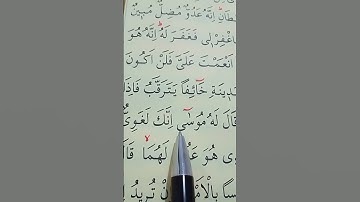 طَانِ اِنَّهُ عَدُوٌّ مُضِلٌّ مُبِينٌ
فَاغْفِرْ لِي فَغَفَرَ لَهُ اِنَّهُ هُوَ
اَنْعَمْتَ عَلَيَّ فَلَنْ اَكُونَ
دِينَةِ خَآئِفاً يَتَرَقَّبُ فَاِذَا
قَالَ لَهُ مُوسٰٓى اِنَّكَ لَغَوِيٌّ
ى هُوَ عَدُوٌّ لَهُمَا قَالَ
ساً بِالْاَمْسِ تُرِيدُ